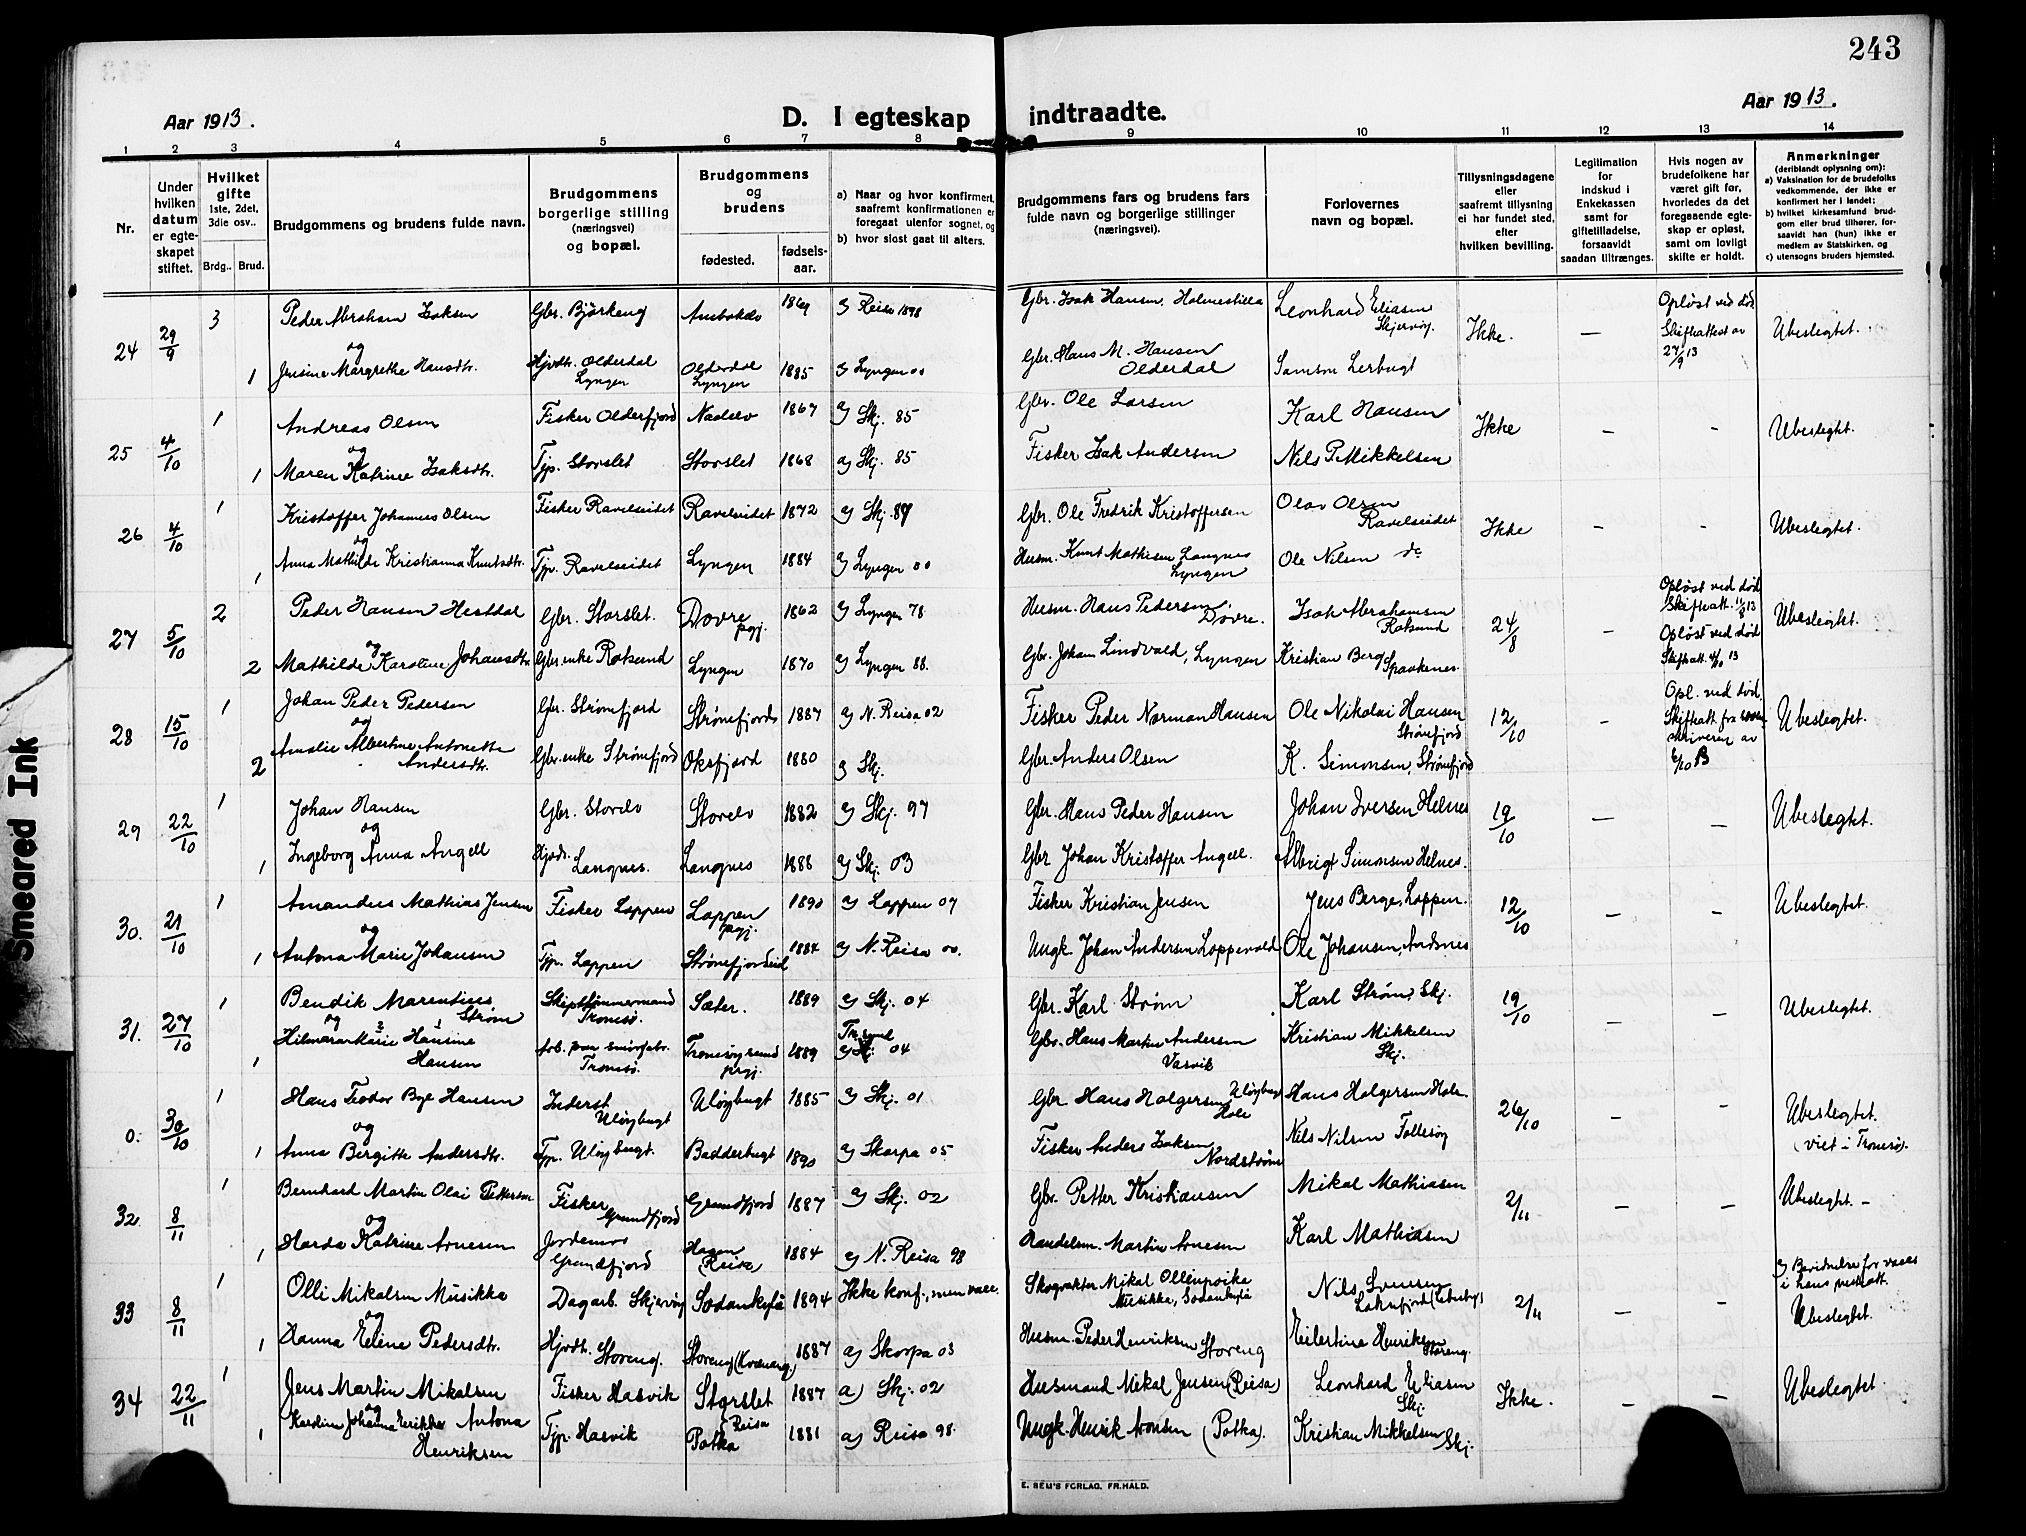 243
Aar 1913.
D. I egteskap indtraadte.
Aar 1913.
1 2 3 4 5 6 7 8 9 10 11 12 13 14
Nr.
Under hvilken datum er egteskapet stiftet.
Hvilket gifte 1ste, 2del, 3die osv..
Brdg.. Brud.
Brudgommens og brudens fulde navn.
Brudgommens borgerlige stilling (næringsvei) og bopæl.
Brudgommens og brudens
fødested. fødselsaar.
a) Naar og hvor konfirmert, saafremt konfirmationen er foregaat utenfor sognet, og
b) hvor sidst gaat til alters.
Brudgommens fars og brudens fars fulde navn og borgerlige stillinger (næringsvei).
Forlovernes navn og bopæl.
Tillysningsdagene eller saafremt tillysning ei har fundet sted, efter hvilken bevilling.
Legitimation for indskud i Enkekassen samt for giftetilladelse, forsaavidt saadan tiltrænges.
Hvis nogen av brudefolkene har været gift før, hvorledes da det foregaaende egteskap er opløst, samt om lovligt skifte er holdt.
Anmerkninger (deriblandt oplysning om):
a) Vaksination for de brudefolks vedkommende, der ikke er konfirmert her i landet;
b) hvilket kirkesamfund brudgom eller brud tilhører, forsaavidt han (hun) ikke er medlem av Statskirken, og
c) utensogns bruders hjemsted.
24 29/9 3 Peder Abraham Isaksen Gbr. Bjørkeng 1869 a) Reisa 1898 Gbr. Isak Hansen, Holmestilla Leonhard Eliasen Skjervøy. Ikke. — Opløst ved død Skifteattest av 27/9 13 Ubeslegtet.
og
1 Jensine Margrethe Hansdtr. Hjvdtr. Olderdal Lyngen Olderdal Lyngen 1885 a) Lyngen 00 Gbr. Hans M. Hansen Olderdal Samson Lerbugt
25 4/10 1 Andreas Olsen Fisker Olderfjord 1867 a) Skj. 85 Gbr. Ole Larsen Karl Hansen Ikke — - Ubeslegtet.
og
1 Maren Katrine Isaksdtr. Tjp. Storslet Storslet 1868 a) Skj. 85 Fisker Isak Andersen Nils P Mikkelsen
26 4/10 1 Kristoffer Johannes Olsen Fisker Ravelseidet Ravelseidet 1872 a) Skj. 87 Gbr. Ole Fredrik Kristoffersen Olav Olsen Ravelseidet Ikke - - Ubeslegtet.
og
1 Anna Mathilde Kristianna Knutsdtr. Tjp. Ravelseidet Lyngen 1884 a) Lyngen 00 Husm. Knut Mathisen Langnes Lyngen Ole Nilsen do
27 5/10 2 Peder Hansen Hestdal Gbr. Storslet. Dovre pgj. 1862 a) Lyngen 78 Husm. Hans Pedersen Dovre. Isak Abrahamsen Rotsund 24/8 - Opløst ved død Skifteatt. 11/8 13 Ubeslegtet.
og
2 Mathilde Karoline Johansdtr. Gbr. enke Rotsund Lyngen 1870 a) Lyngen 88. Gbr. Johan Lindvald, Lyngen Kristian Berg Spaaknes. Opløst ved død Skifteatt. 4/10 13
28 15/10 1 Johan Peder Pedersen Gbr. Strømfjord Strømfjord 1887 a) N. Reisa 02 Fisker Peder Norman Hansen Ole Nikolai Hansen Strømfjord 12/10 - Opl. ved død. Skifteatt. fra soren skriveren av 6/10 13 Ubeslegtet.
og
2 Amalie Albertine Antonette Andersdtr. Gbr. enke Strømfjord Oksfjord 1880 a) Skj. Gbr. Anders Olsen K. Simonsen, Strømfjord
29 22/10 1 Johan Hansen Gbr. Storelv Storelv 1882 a) Skj. 97 Gbr. Hans Peder Hansen Johan Iversen Helnes 19/10 — — Ubeslegtet.
og
1 Ingeborg Anna Angell Hjvdtr. Langnes. Langnes 1888 a) Skj. 03 Gbr Johan Kristoffer Angell. Albrigt Simonsen Helnes.
30. 21/10 1 Amandus Mathias Jensen Fisker Loppen Loppen pgj. 1890 a) Loppen 07 Fisker Kristian Jensen Jens Berge, Loppen. 12/10 — — Ubeslegtet.
og
1 Antona Marie Johansen Tjp. Loppen Strømfjordeid 1884 a) N. Reisa 00. Ungk. Johan Andersen Loppevold Ole Johansen, Andsnes
31. 27/10 1 Bendik Marentius Strøm Skipstømmermand Tromsø. Sæter. 1889 a) Skj. 04 Gbr. Karl Strøm Karl Strøm, Skj. 19/10 — — Ubeslegtet.
og
1 Hilmara Marie Hansine Hansen Tromsø. Tromsøysund pgj. 1889 a) Tr.sund 04 Gbr. Hans Martin Andersen Vasvik Kristian Mikkelsen Skj.
0. 30/10 1 Hans Teodor Bye Hansen Inderst Uløybugt Uløybugt 1885 a) Skj. 01 Gbr Hans Holgersen Uløybugt Hole Hans Holgersen Hole 26/10 — - Ubeslegtet. (viet i Tromsø).
og
1 Anna Bergitte Andersdtr. Tjp. Uløybugt. Badderbugt 1890 a) Skorpa 05 Fisker Anders Isaksen Nordstrøm Nils Nilsen Follesøy
32. 8/11 1 Bernhard Martin Olai Pettersen Fisker Grundfjord Grundfjord 1887 a) Skj. 02 Gbr. Petter Kristiansen Mikal Mathiasen 2/11 — — Ubeslegtet. -
og
1 Harda Katrine Arnesen Jordemor Grundfjord Reisa 1884 a) N. Reisa 98 Handelsm. Martin Arnesen Karl Mathiasen
33 8/11 1 Olli Mikalsen Musikka Dagarb. Skjervøy Sodankylä 1894 Ikke konf., men vacc. Skogvokter Mikal Ollinpoika Musikka, Sodankylä Nils 2/11 — — a) Bevidnelse for vacc. i hans prestatt. Ubeslegtet.
og
1 Hanna Eline Pedersdtr. Hjvdtr. Storeng. Storeng (Kvænang.) 1887 a) Skorpa 03 Husm. Peder Henriksen Storeng Eilertine Henriksen Storeng.
34 22/11 1 Jens Martin Mikalsen Fisker Hasvik Storslet Reisa 1887 a) Skj. 02 Husmand Mikal Jensen (Reisa) Leonhard Eliasen Skj. Ikke. — — Ubeslegtet
og
1 Karoline Johanna Erikke Antona Henriksen Tjp. Hasvik Potka 1881 a) Reisa 98. Ungk. Henrik Aronsen (Potka). Kristian Mikkelsen Skj.
E. SEM'S FORLAG, FR.HALD.
Smeared Ink